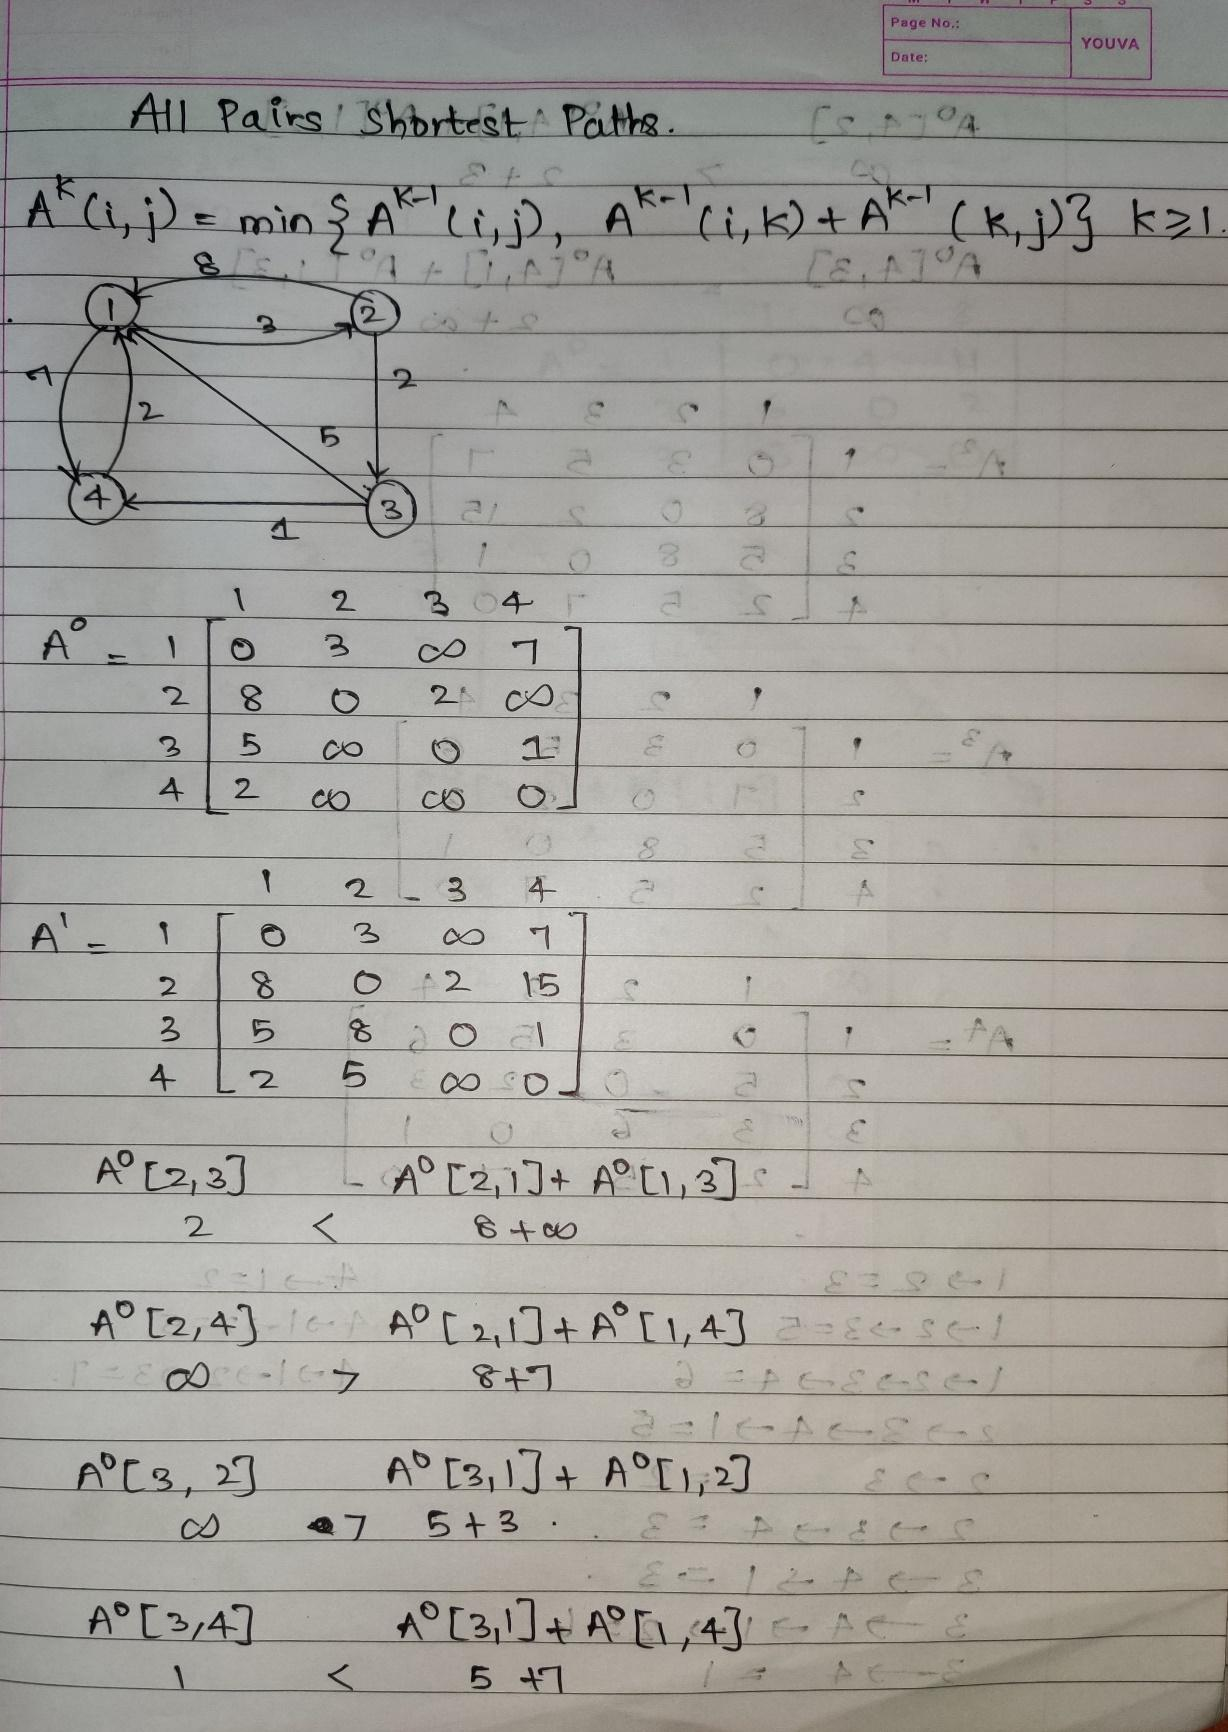 Page No.:
Date:
YOUVA
All Pairs Shortest Paths.
A^k (i, j) = min { A^{k-1} (i, j), A^{k-1} (i, k) + A^{k-1} (k, j) } k ≥ 1.
8
1 3 2
7 2 2
5
4 1 3
1 2 3 4
A⁰ = 1 [ 0 3 ∞ 7 ]
2 8 0 2 ∞
3 5 ∞ 0 1
4 2 ∞ ∞ 0
1 2 3 4
A¹ = 1 [ 0 3 ∞ 7 ]
2 8 0 2 15
3 5 8 0 1
4 2 5 ∞ 0
A⁰ [2,3] A⁰ [2,1] + A⁰ [1,3]
2 < 8 + ∞
A⁰ [2,4] A⁰ [2,1] + A⁰ [1,4]
∞ > 8+7
A⁰ [3, 2] A⁰ [3,1] + A⁰ [1,2]
∞ > 5+3 .
A⁰ [3,4] A⁰ [3,1] + A⁰ [1,4]
1 < 5 +7